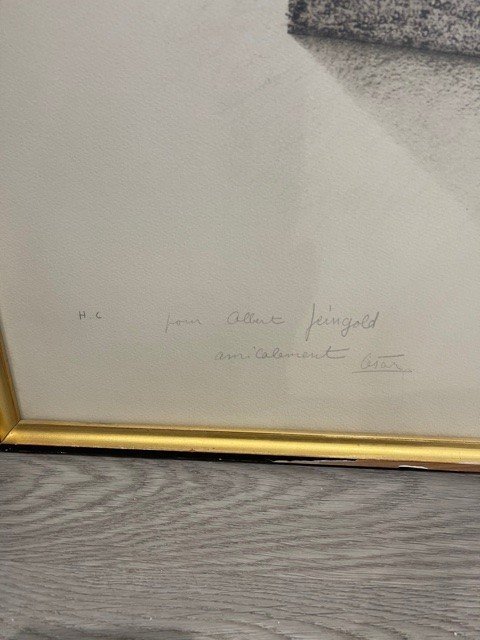 H.C pour Albert Feingold
amicalement César